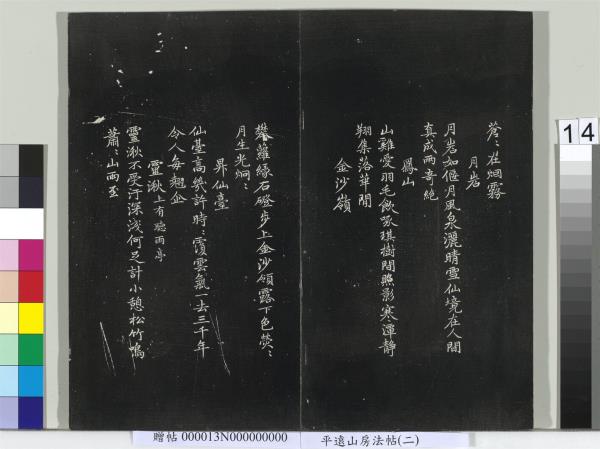 蒼〻在烟霧
月岩
月岩如偃月風泉灑晴雪仙境在人間
真成兩奇絕
鳳山
山雞愛羽毛飲啄琪樹間照影寒潭靜
翔集落華間
金沙嶺
攀蘿緣石磴步上金沙嶺露下色熒〻
月生光炯〻
昇仙臺
仙臺高幾許時〻霞雲氣一去三千年
令人每翹企
靈湫上有聽雨亭
靈湫不受汙深淺何足計小憩松竹塢
蕭〻山雨至
14
贈帖 000013N000000000 平遠山房法帖(二)